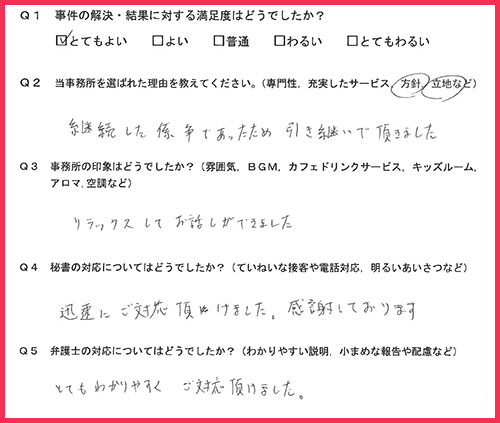 Q1 事件の解決・結果に対する満足度はどうでしたか？
☑とてもよい □よい □普通 □わるい □とてもわるい
Q2 当事務所を選ばれた理由を教えてください。（専門性，充実したサービス，方針，立地など）
継続した係争であったため 引き継いで頂きました
Q3 事務所の印象はどうでしたか？（雰囲気，BGM，カフェドリンクサービス，キッズルーム，
アロマ，空調など）
リラックスして お話しができました
Q4 秘書の対応についてはどうでしたか？（ていねいな接客や電話対応，明るいあいさつなど）
迅速に ご対応 頂けました。感謝しております
Q5 弁護士の対応についてはどうでしたか？（わかりやすい説明，小まめな報告や配慮など）
とてもわかりやすく ご対応頂けました。